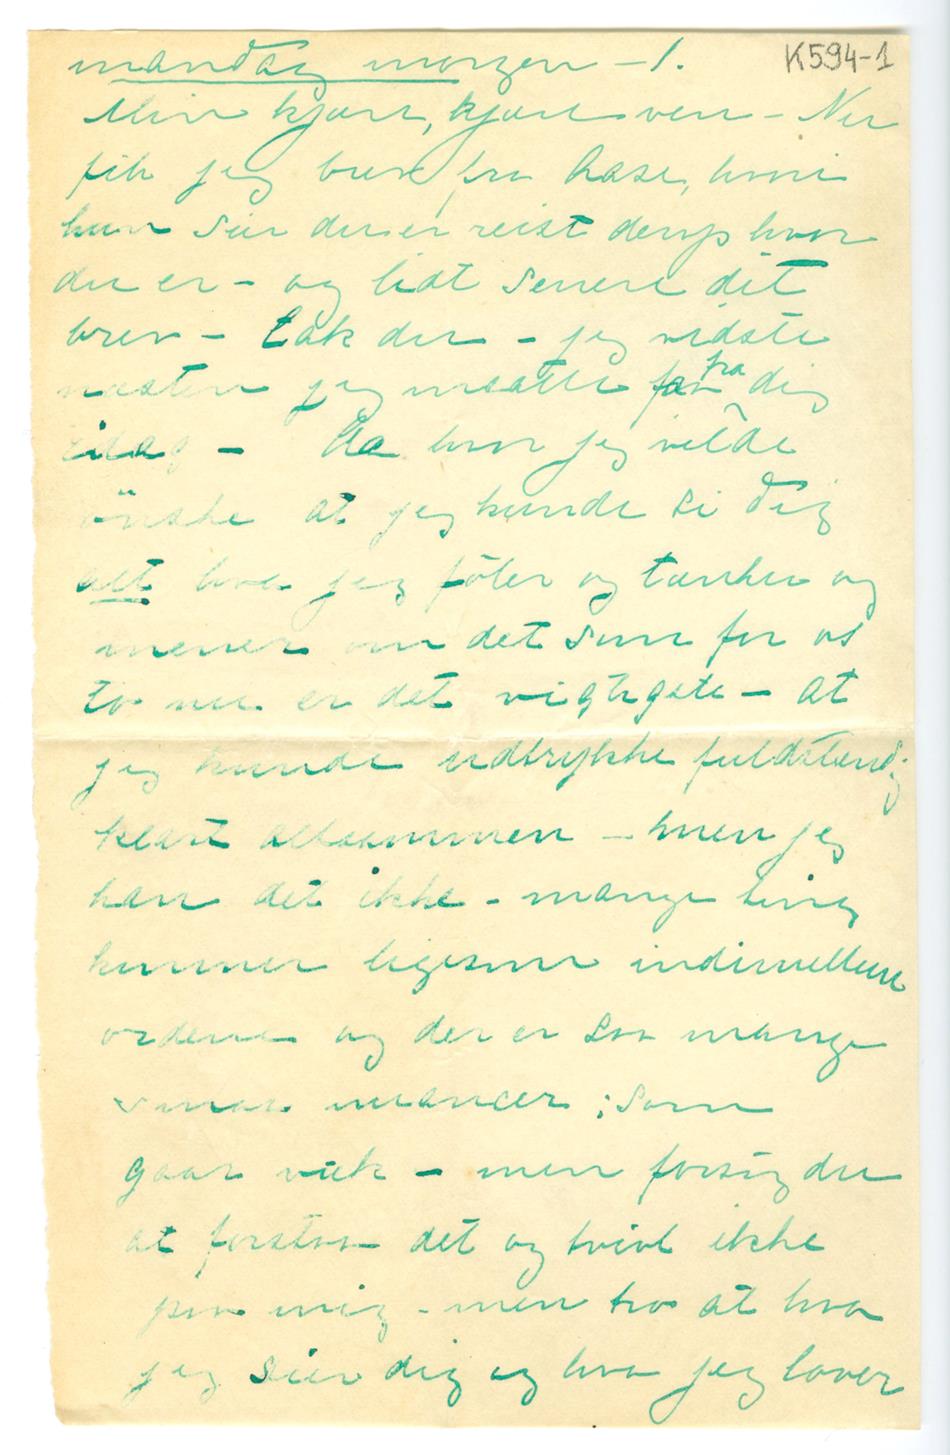 K594-1
mandag morgen – 1.
Min kjære, kjære ven – Nu
fik jeg brev fra Aase, hvori
hun sier du er reist derop hvor
du er – og lidt senere dit
brev – tak du – jeg vidste
næsten jeg maatte faa fra dig
idag – Aa hvor jeg vilde
önske at jeg kunde si dig
alt hva jeg föler og tænker og
mener om det som for os
to nu er det vigtigste – at
jeg kunde udtrykke fuldstændig
klart altsammen – men jeg
kan det ikke – mange ting
kommer ligesom indimellem
ordene og der er saa mange
smaa nuancer ; som
gaar væk – men forsög du
at forstaa det og tvivl ikke
paa mig – men tro at hva
jeg sier dig og hva jeg lover